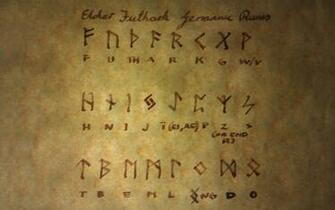 Elder Futhark Germanic Runes
ᚠ ᚢ ᚦ ᚨ ᚱ ᚲ ᚷ ᚹ
F U TH A R K G W/V
ᚺ ᚾ ᛁ ᛃ ᛇ ᛈ ᛉ ᛊ
H N I J Ï P Z S
(OR END
ᛏ ᛒ ᛖ ᛗ ᛚ ᛜ ᛞ ᛟ
T B E M L NG D O